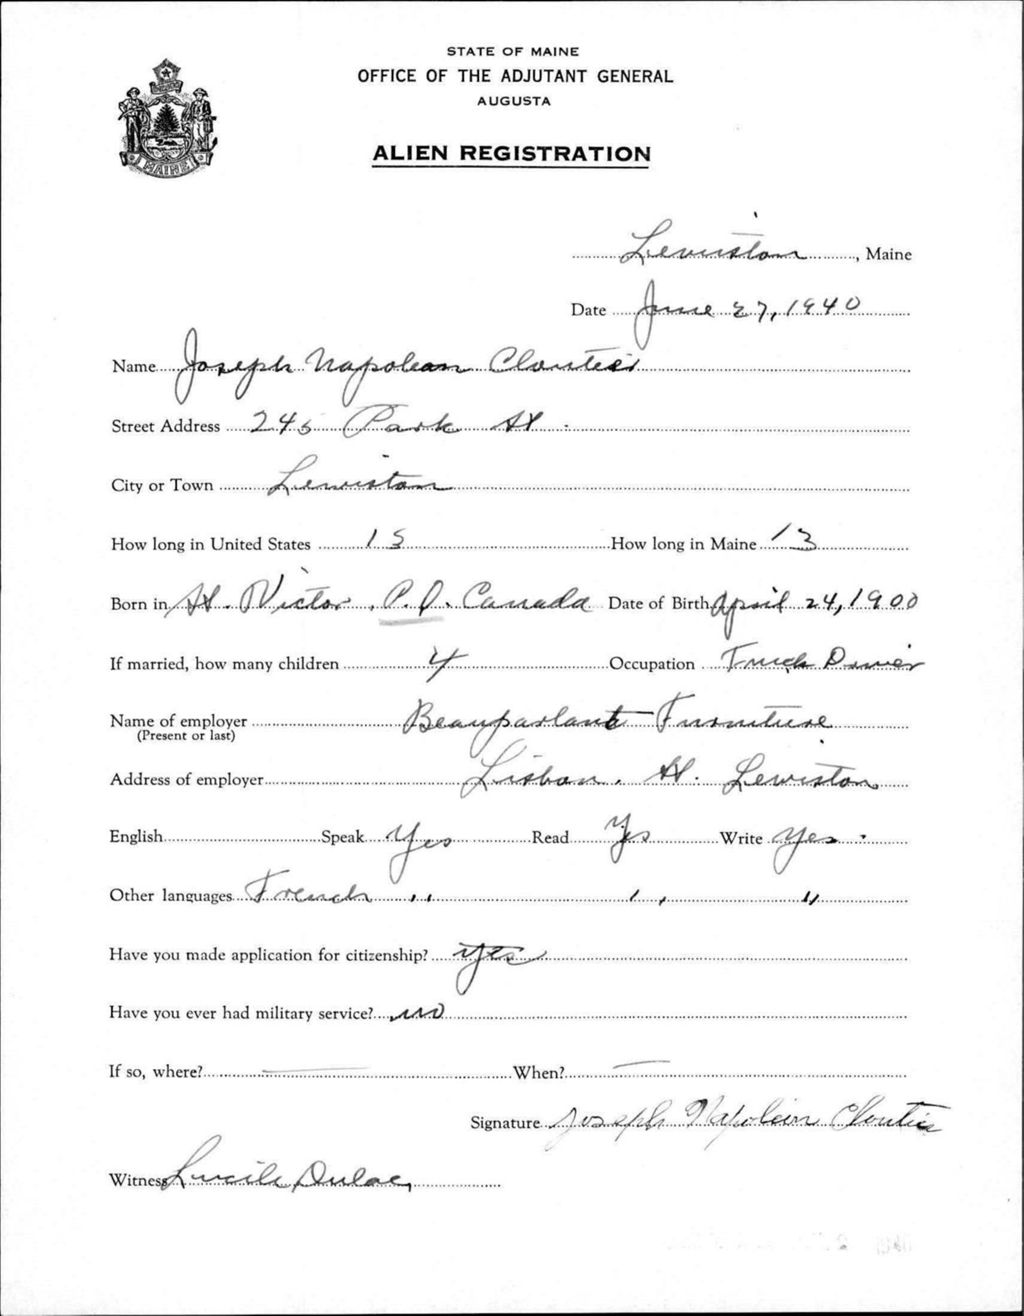 STATE OF MAINE
OFFICE OF THE ADJUTANT GENERAL
AUGUSTA
ALIEN REGISTRATION
MAINE
Lewiston, Maine
Date June 27, 1940
Name Joseph Napoleon Cloutier
Street Address 245 Park St.
City or Town Lewiston
How long in United States 15 How long in Maine 13
Born in St. Victor, P.Q. Canada Date of Birth April 24, 1900
If married, how many children 4 Occupation Truck Driver
Name of employer Beauparlant Furniture
(Present or last)
Address of employer Lisbon St. Lewiston
English Speak Yes Read Yes Write Yes.
Other languages French " " "
Have you made application for citizenship? Yes
Have you ever had military service? no
If so, where? — When? —
Signature Joseph Napoleon Cloutier
Witness Lucile Dulac